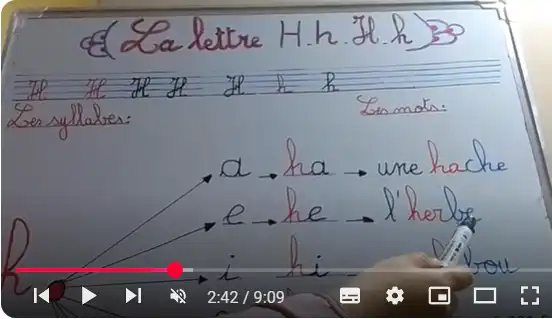 La lettre H.h.H.h
H H H H H h h
Les syllabes: Les mots:
a ha une hache
e he l'herbe
h i hi bou
2:42 / 9:09